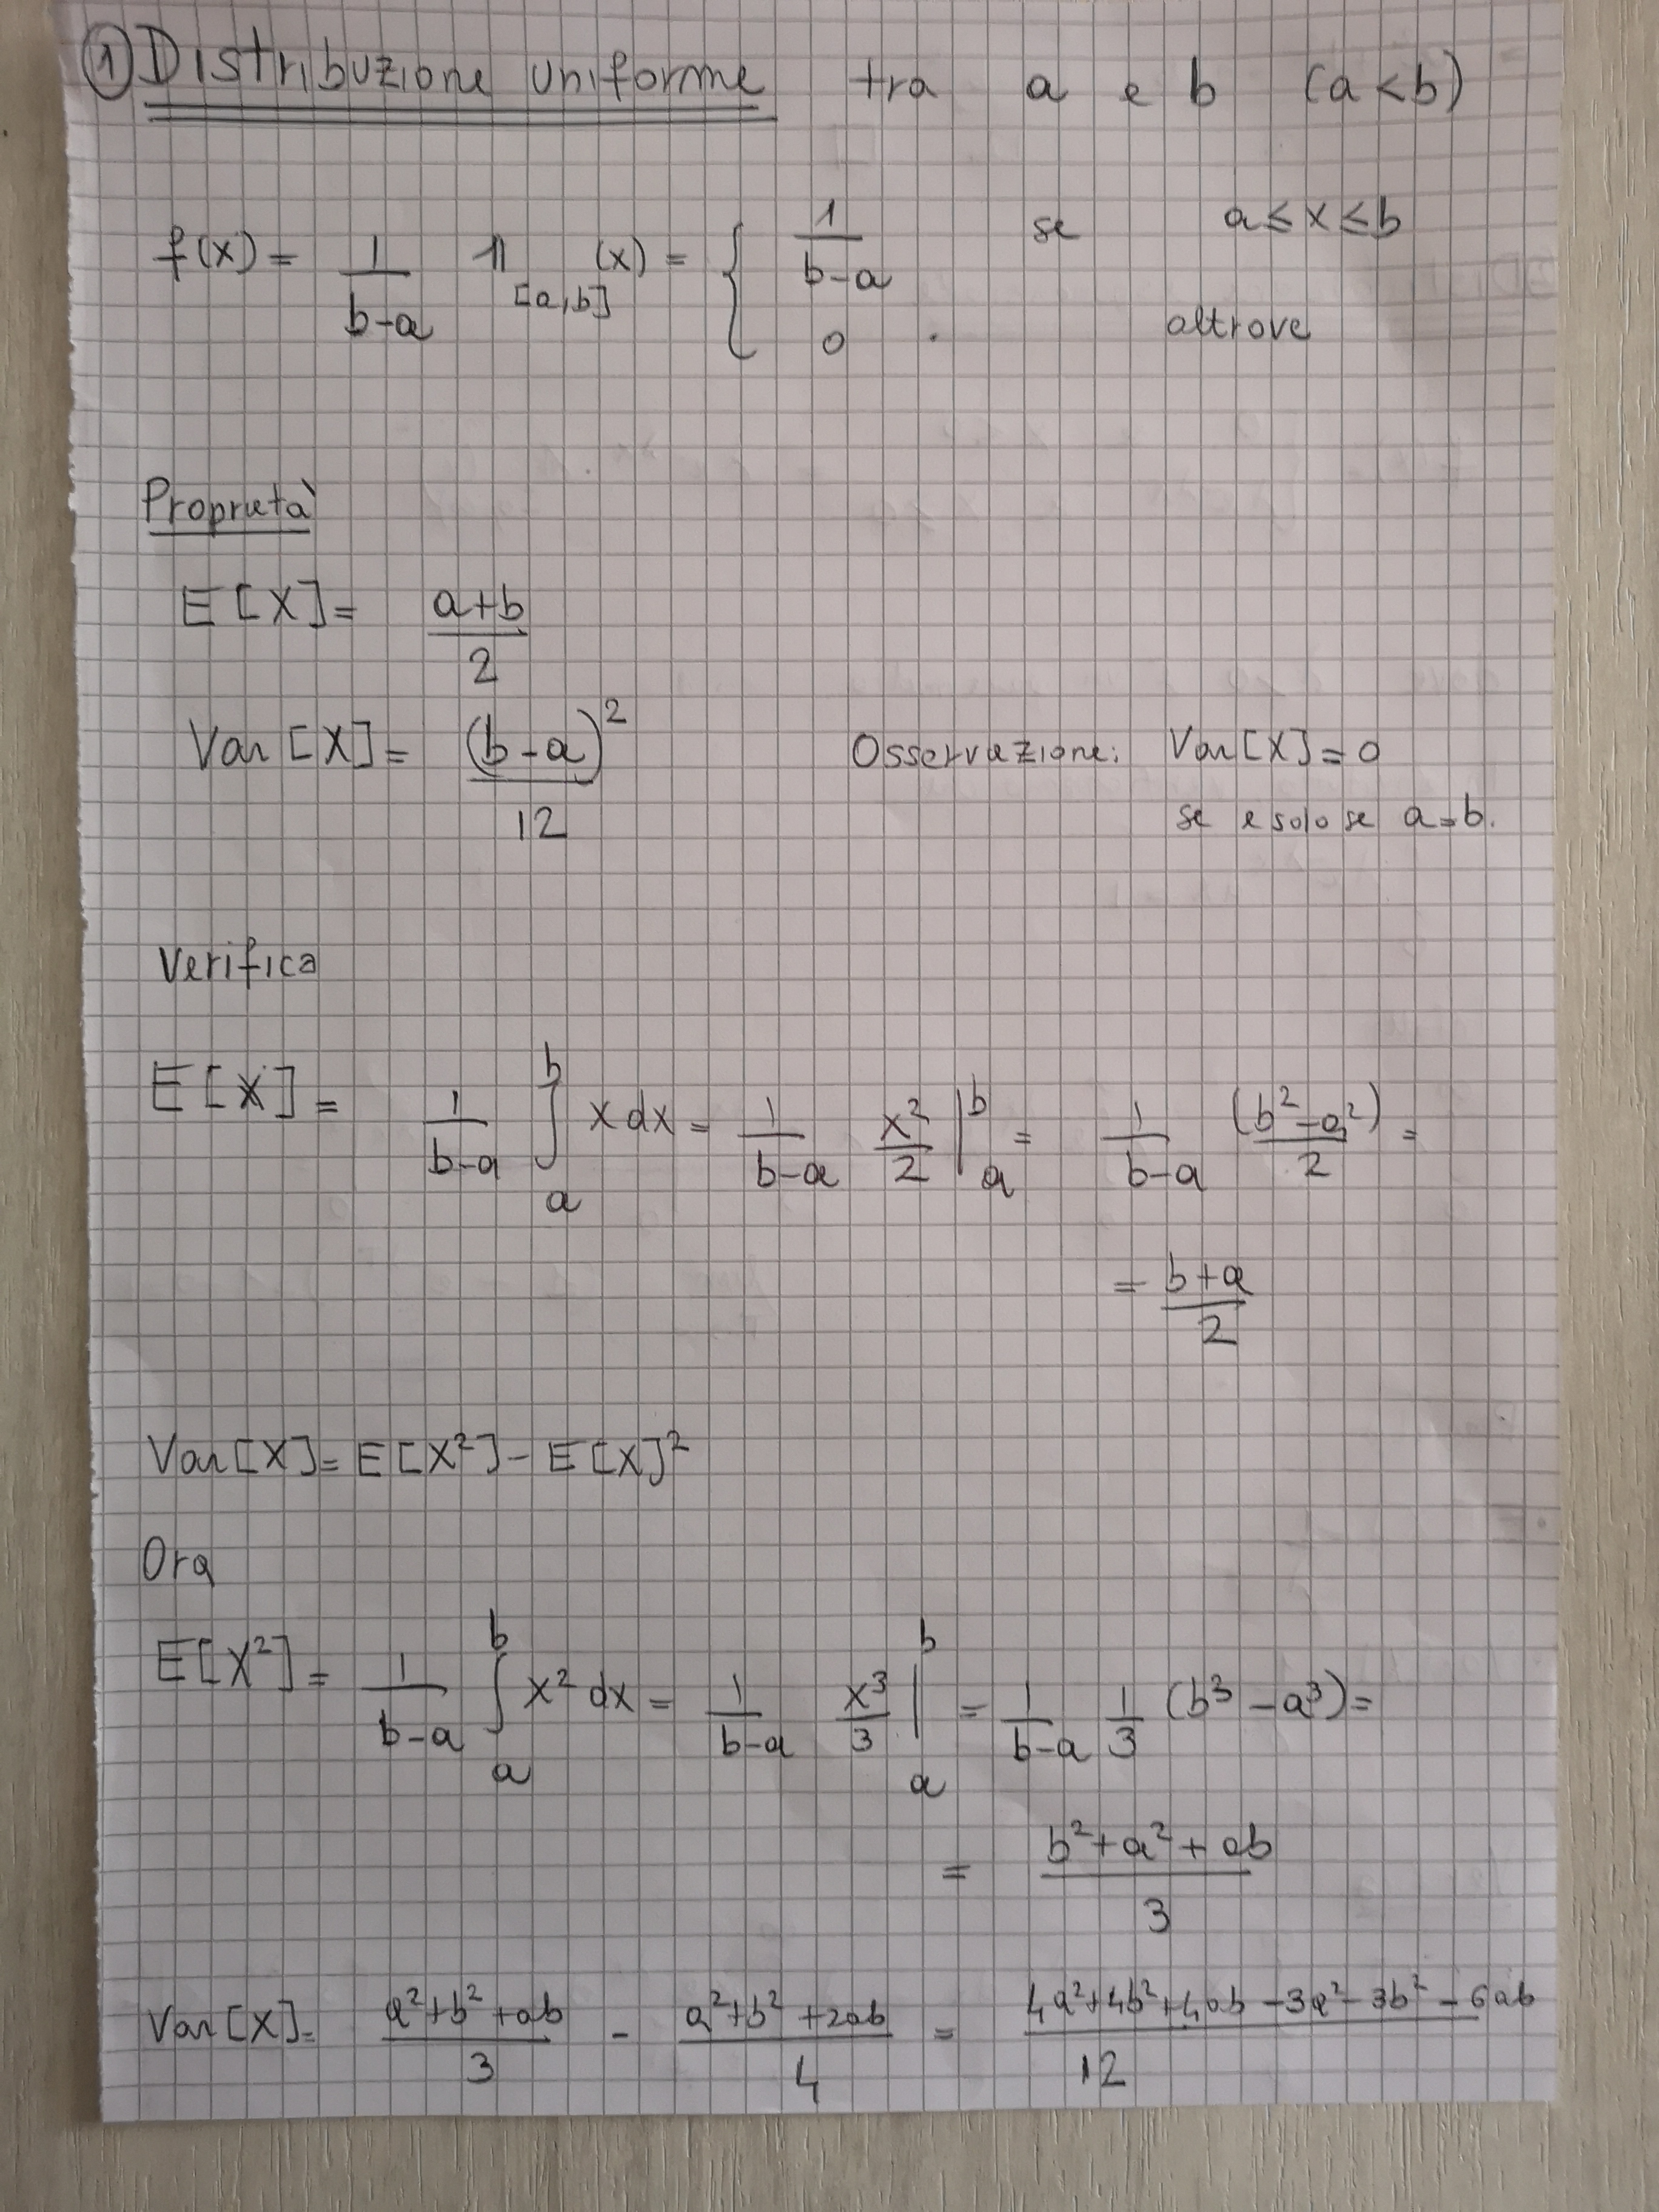 ① Distribuzione uniforme tra a e b (a<b)
f(x) = 1/(b-a) 𝟙_[a,b] (x) = { 1/(b-a) se a ≤ x ≤ b
0 altrove
Proprietà
E[X] = (a+b)/2
Var[X] = (b-a)²/12 Osservazione: Var[X] = 0
se e solo se a=b.
Verifica
E[X] = 1/(b-a) ∫_a^b x dx = 1/(b-a) x²/2 |_a^b = 1/(b-a) (b²-a²)/2 =
= (b+a)/2
Var[X] = E[X²] - E[X]²
Ora
E[X²] = 1/(b-a) ∫_a^b x² dx = 1/(b-a) x³/3 |_a^b = 1/(b-a) 1/3 (b³-a³) =
= (b²+a²+ab)/3
Var[X] = (a²+b²+ab)/3 - (a²+b²+2ab)/4 = (4a²+4b²+4ab-3a²-3b²-6ab)/12